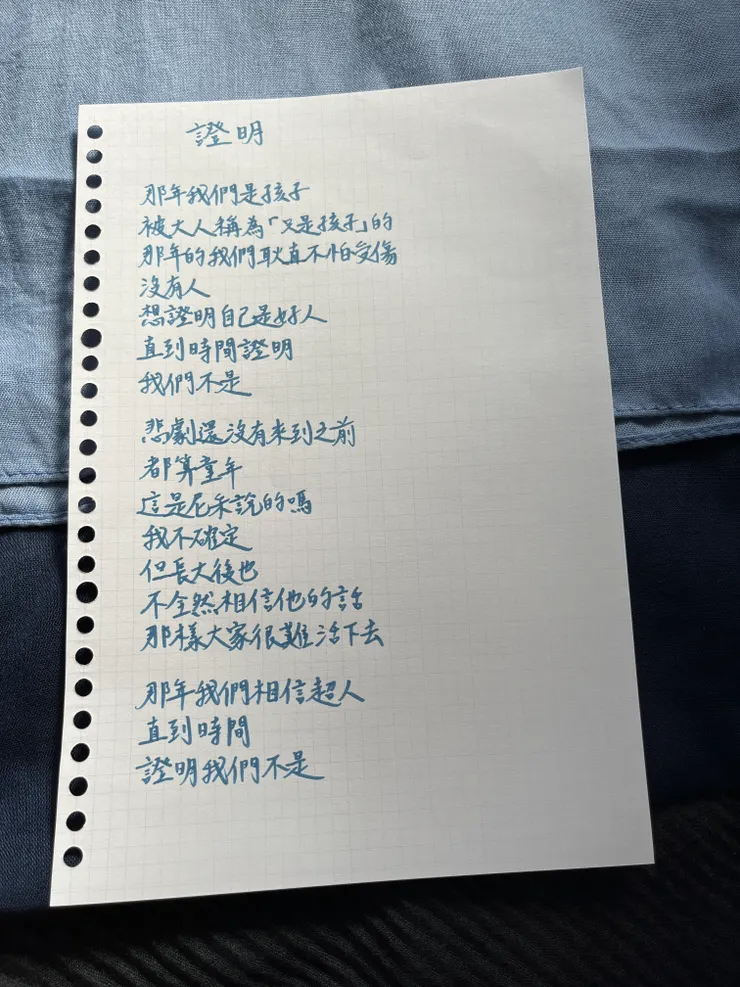 證明
那年我們是孩子
被大人稱為「又是孩子」的
那年的我們耿直不怕受傷
沒有人
想證明自己是好人
直到時間證明
我們不是
悲劇還沒有來到之前
都算童年
這是尼采說的嗎
我不確定
但長大後也
不全然相信他的話
那樣大家很難活下去
那年我們相信超人
直到時間
證明我們不是